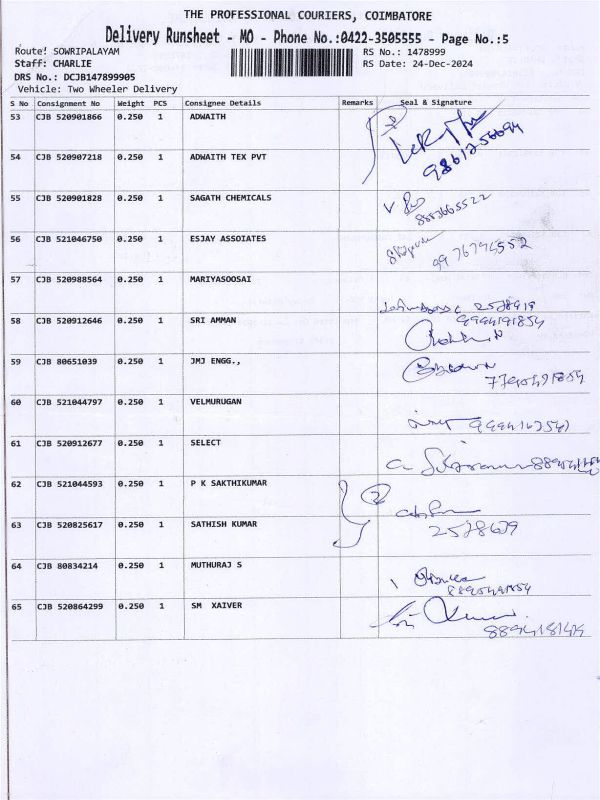 THE PROFESSIONAL COURIERS, COIMBATORE
Delivery Runsheet - MO - Phone No.:0422-3505555 - Page No.:5
Route: SOWRIPALAYAM RS No.: 1478999
Staff: CHARLIE RS Date: 24-Dec-2024
DRS No.: DCJB147899905
Vehicle: Two Wheeler Delivery
S No Consignment No Weight PCS Consignee Details Remarks Seal & Signature
53 CJB 520901866 0.250 1 ADWAITH
54 CJB 520907218 0.250 1 ADWAITH TEX PVT
55 CJB 520901828 0.250 1 SAGATH CHEMICALS
56 CJB 521046750 0.250 1 ESJAY ASSOIATES
57 CJB 520988564 0.250 1 MARIYASOOSAI
58 CJB 520912646 0.250 1 SRI AMMAN
59 CJB 80651039 0.250 1 JMJ ENGG.,
60 CJB 521044797 0.250 1 VELMURUGAN
61 CJB 520912677 0.250 1 SELECT
62 CJB 521044593 0.250 1 P K SAKTHIKUMAR
2
63 CJB 520825617 0.250 1 SATHISH KUMAR
64 CJB 80834214 0.250 1 MUTHURAJ S
65 CJB 520864299 0.250 1 SM XAIVER